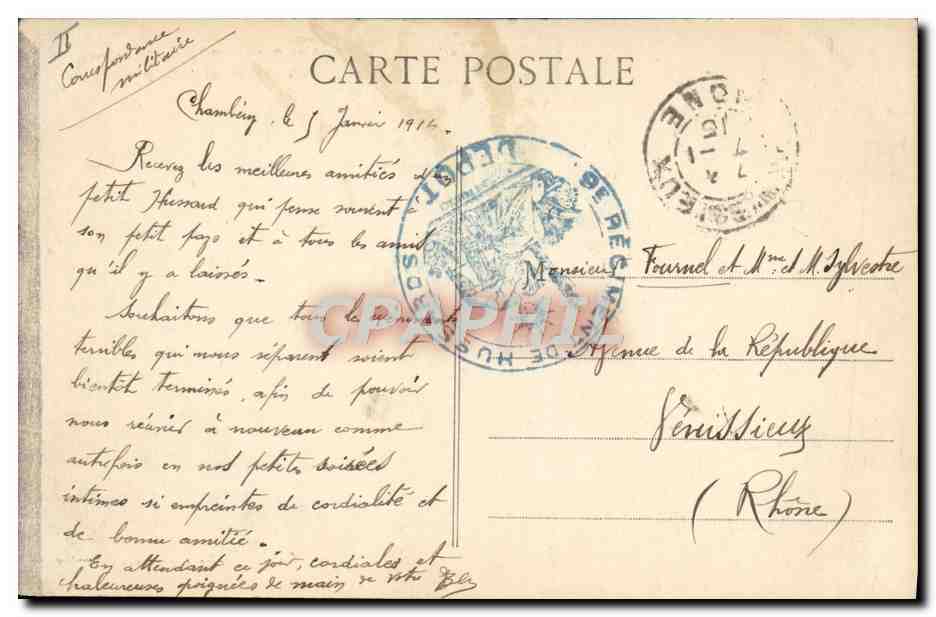 II
Correspondance
militaire
CARTE POSTALE
Chambéry, le 5 Janvier 191
Recevez les meilleures amitiés du
petit Hussard qui pense souvent à
son petit pays et à tous les amis
qu'il y a laissés.
Souhaitons que tous les événements
terribles qui nous séparent soient
bientôt terminés, afin de pouvoir
nous réunir à nouveau comme
autrefois en nos petites soirées
intimes si empreintes de cordialité et
de bonne amitié.
En attendant ce jour, cordiales et
chaleureuses poignées de main de votre
9E RÉGIMENT DE HUSSARDS
DÉPOT.
Monsieur Fournel et Mme et M. Sylvestre
Avenue de la République
Vénissieux
(Rhône)
CPAPHIL